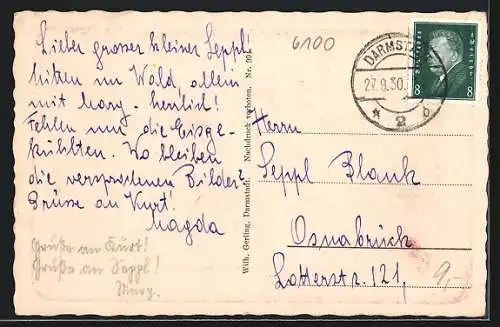 Lieber grosser kleiner Seppl!
Sitzen im Wald, allein
mit Mary - herrlich!
Fehlen nur die Eisge-
kühlten. Wo bleiben
die versprochenen Bilder?
Grüsse an Kurt!
Magda
Grüße an Kurt!
Grüße an Seppl!
Mary.
6100
Wilh. Gerling, Darmstadt. Nachdruck verboten. Nr. 50
DARMST
27.9.30.
* 2 b
Deutsches Reich
8 8
Herrn
Seppl Blank
Osnabrück
Lotterstr. 121,
9,-